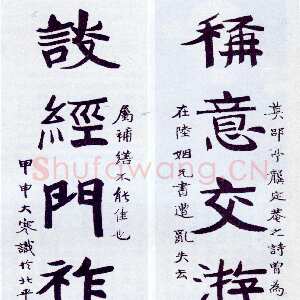 稱意交游
莫邵亭龔定菴之詩曾為
在陸姻兄書遭亂失去
談經門祚
屬補繕不能佳也
甲申大寒識於北平
Shufawang.CN